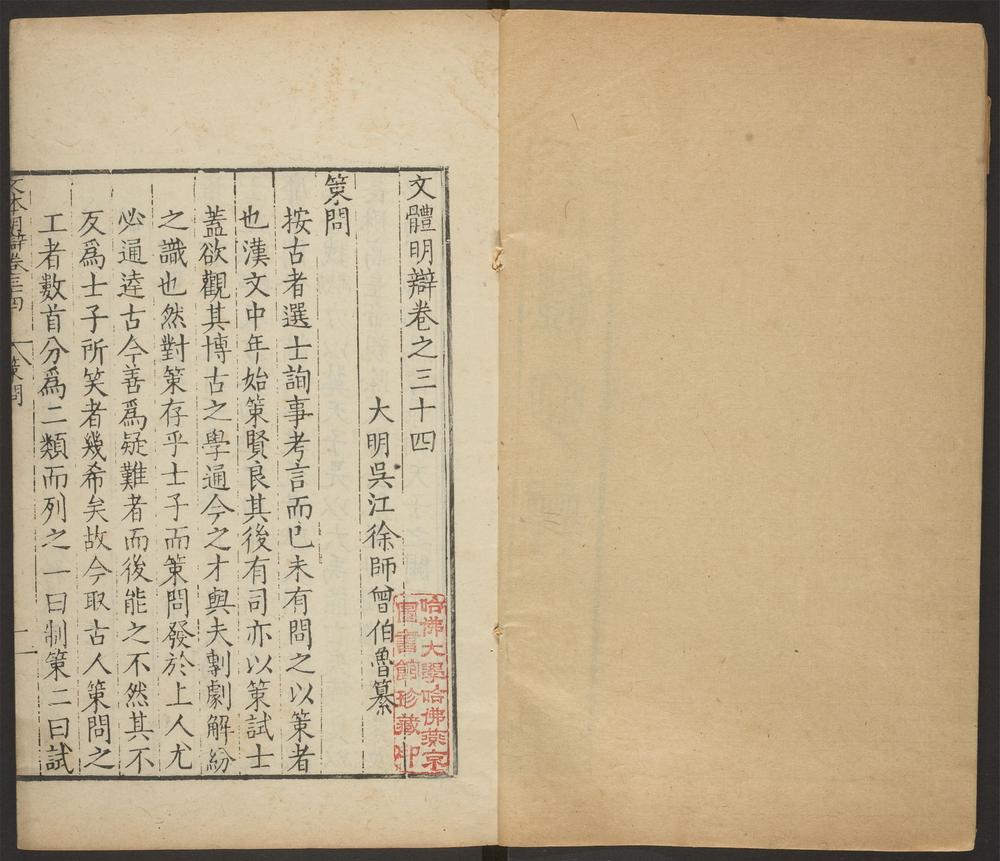 文體明辯卷之三十四
大明吳江徐師曾伯魯纂
策問
按古者選士詢事考言而已未有問之以策者
也漢文中年始策賢良其後有司亦以策試士
蓋欲觀其博古之學通今之才與夫剸劇解紛
之識也然對策存乎士子而策問發於上人尤
必通逹古今善爲疑難者而後能之不然其不
反爲士子所笑者幾希矣故今取古人策問之
工者數首分爲二類而列之一曰制策二曰試
文体明辯卷三十四
策問
一
哈佛大學哈佛燕京
圖書館珍藏印